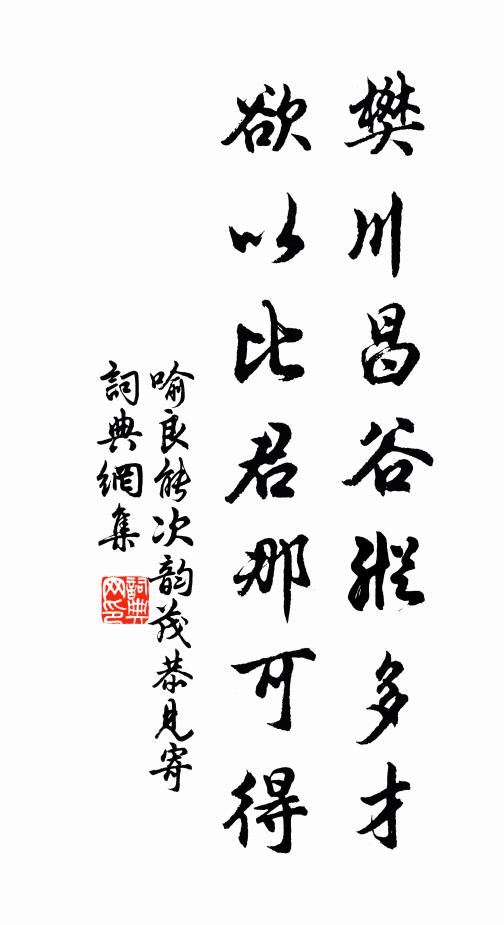 樊川昌谷縱多才
欲以比君那可得
喻良能次韵茂恭見寄
詞典網集
詞典网印